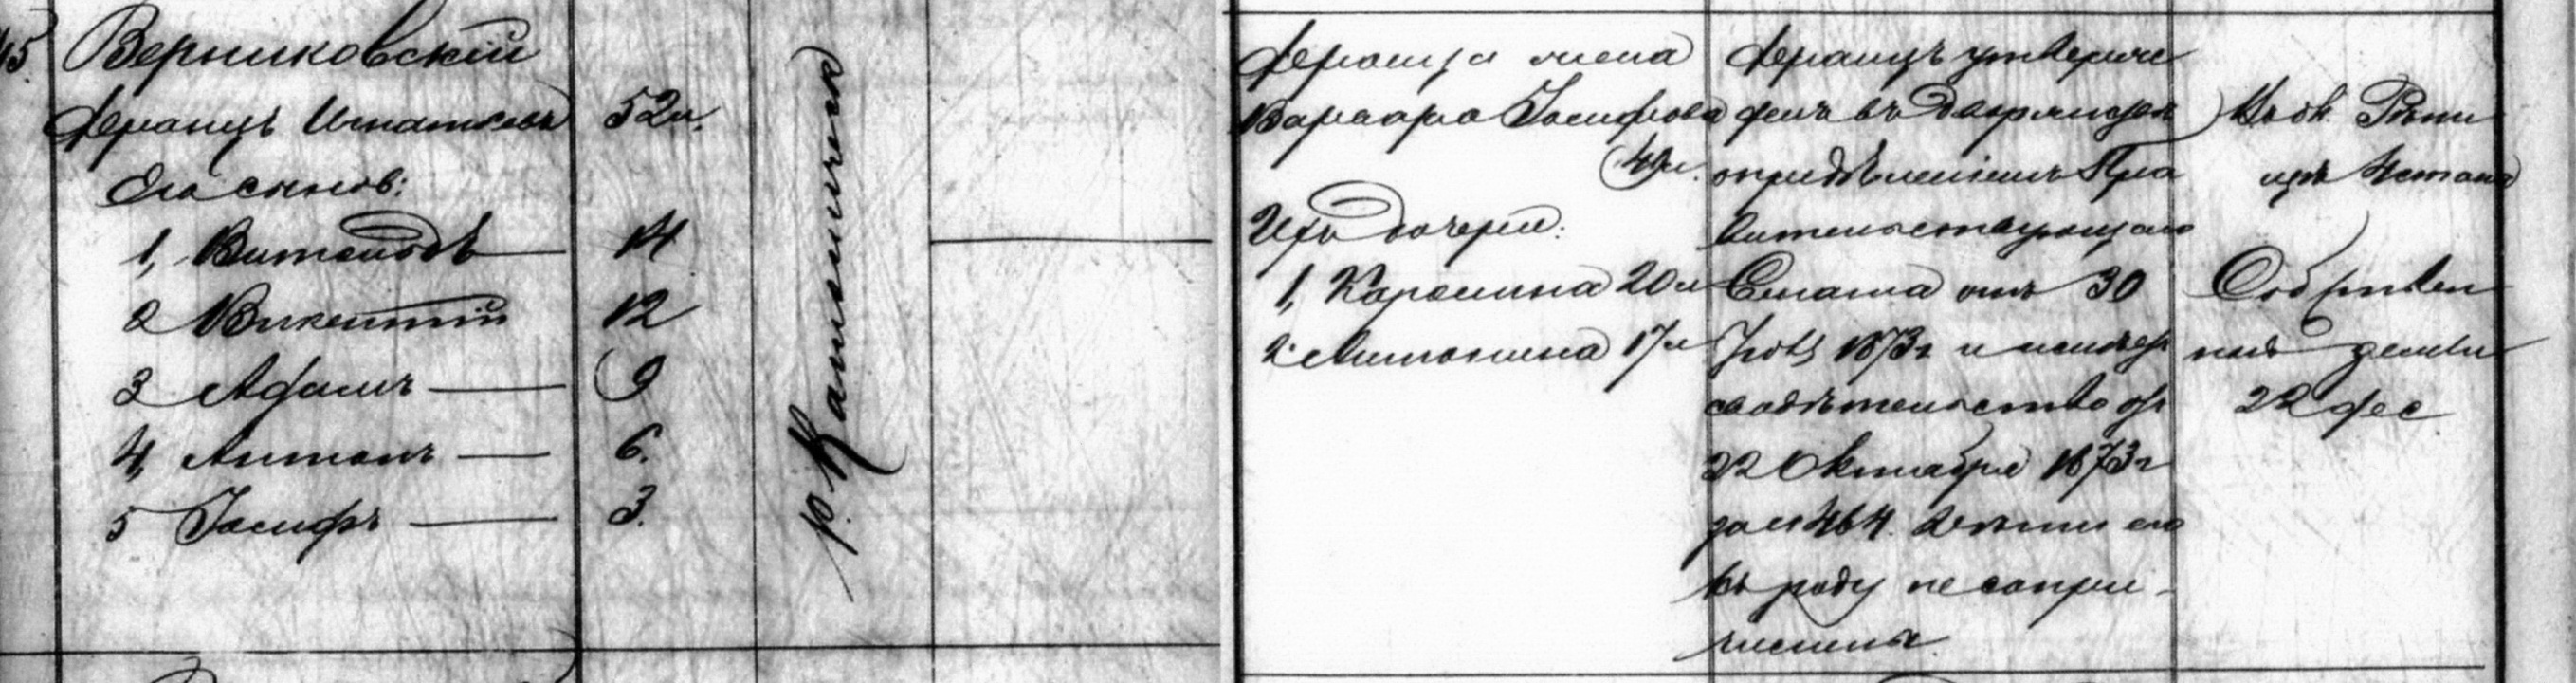 45.
Верниковскій
Францъ Игнатьевъ 52л.
Его сыновь:
1, Витольдъ — 14
2 Викентій 12
3 Адамъ — 9
4, Антонъ — 6.
5 Іосифъ — 3.
р. Католическ
Франца жена
Варвара Іосифова
40л.
Ихъ дочери:
1, Каролина 20л
2. Антонина 17л
Францъ утверж
денъ въ дворянствѣ
опредѣленіемъ Пра
вительствующаго
Сената отъ 30
1873г и имѣетъ
свидѣтельство отъ
22 Октября 1873г
за № 464. Дѣти его
къ роду не сопри-
числены.
Въ ок.
Собствен
ной земли
22 дес